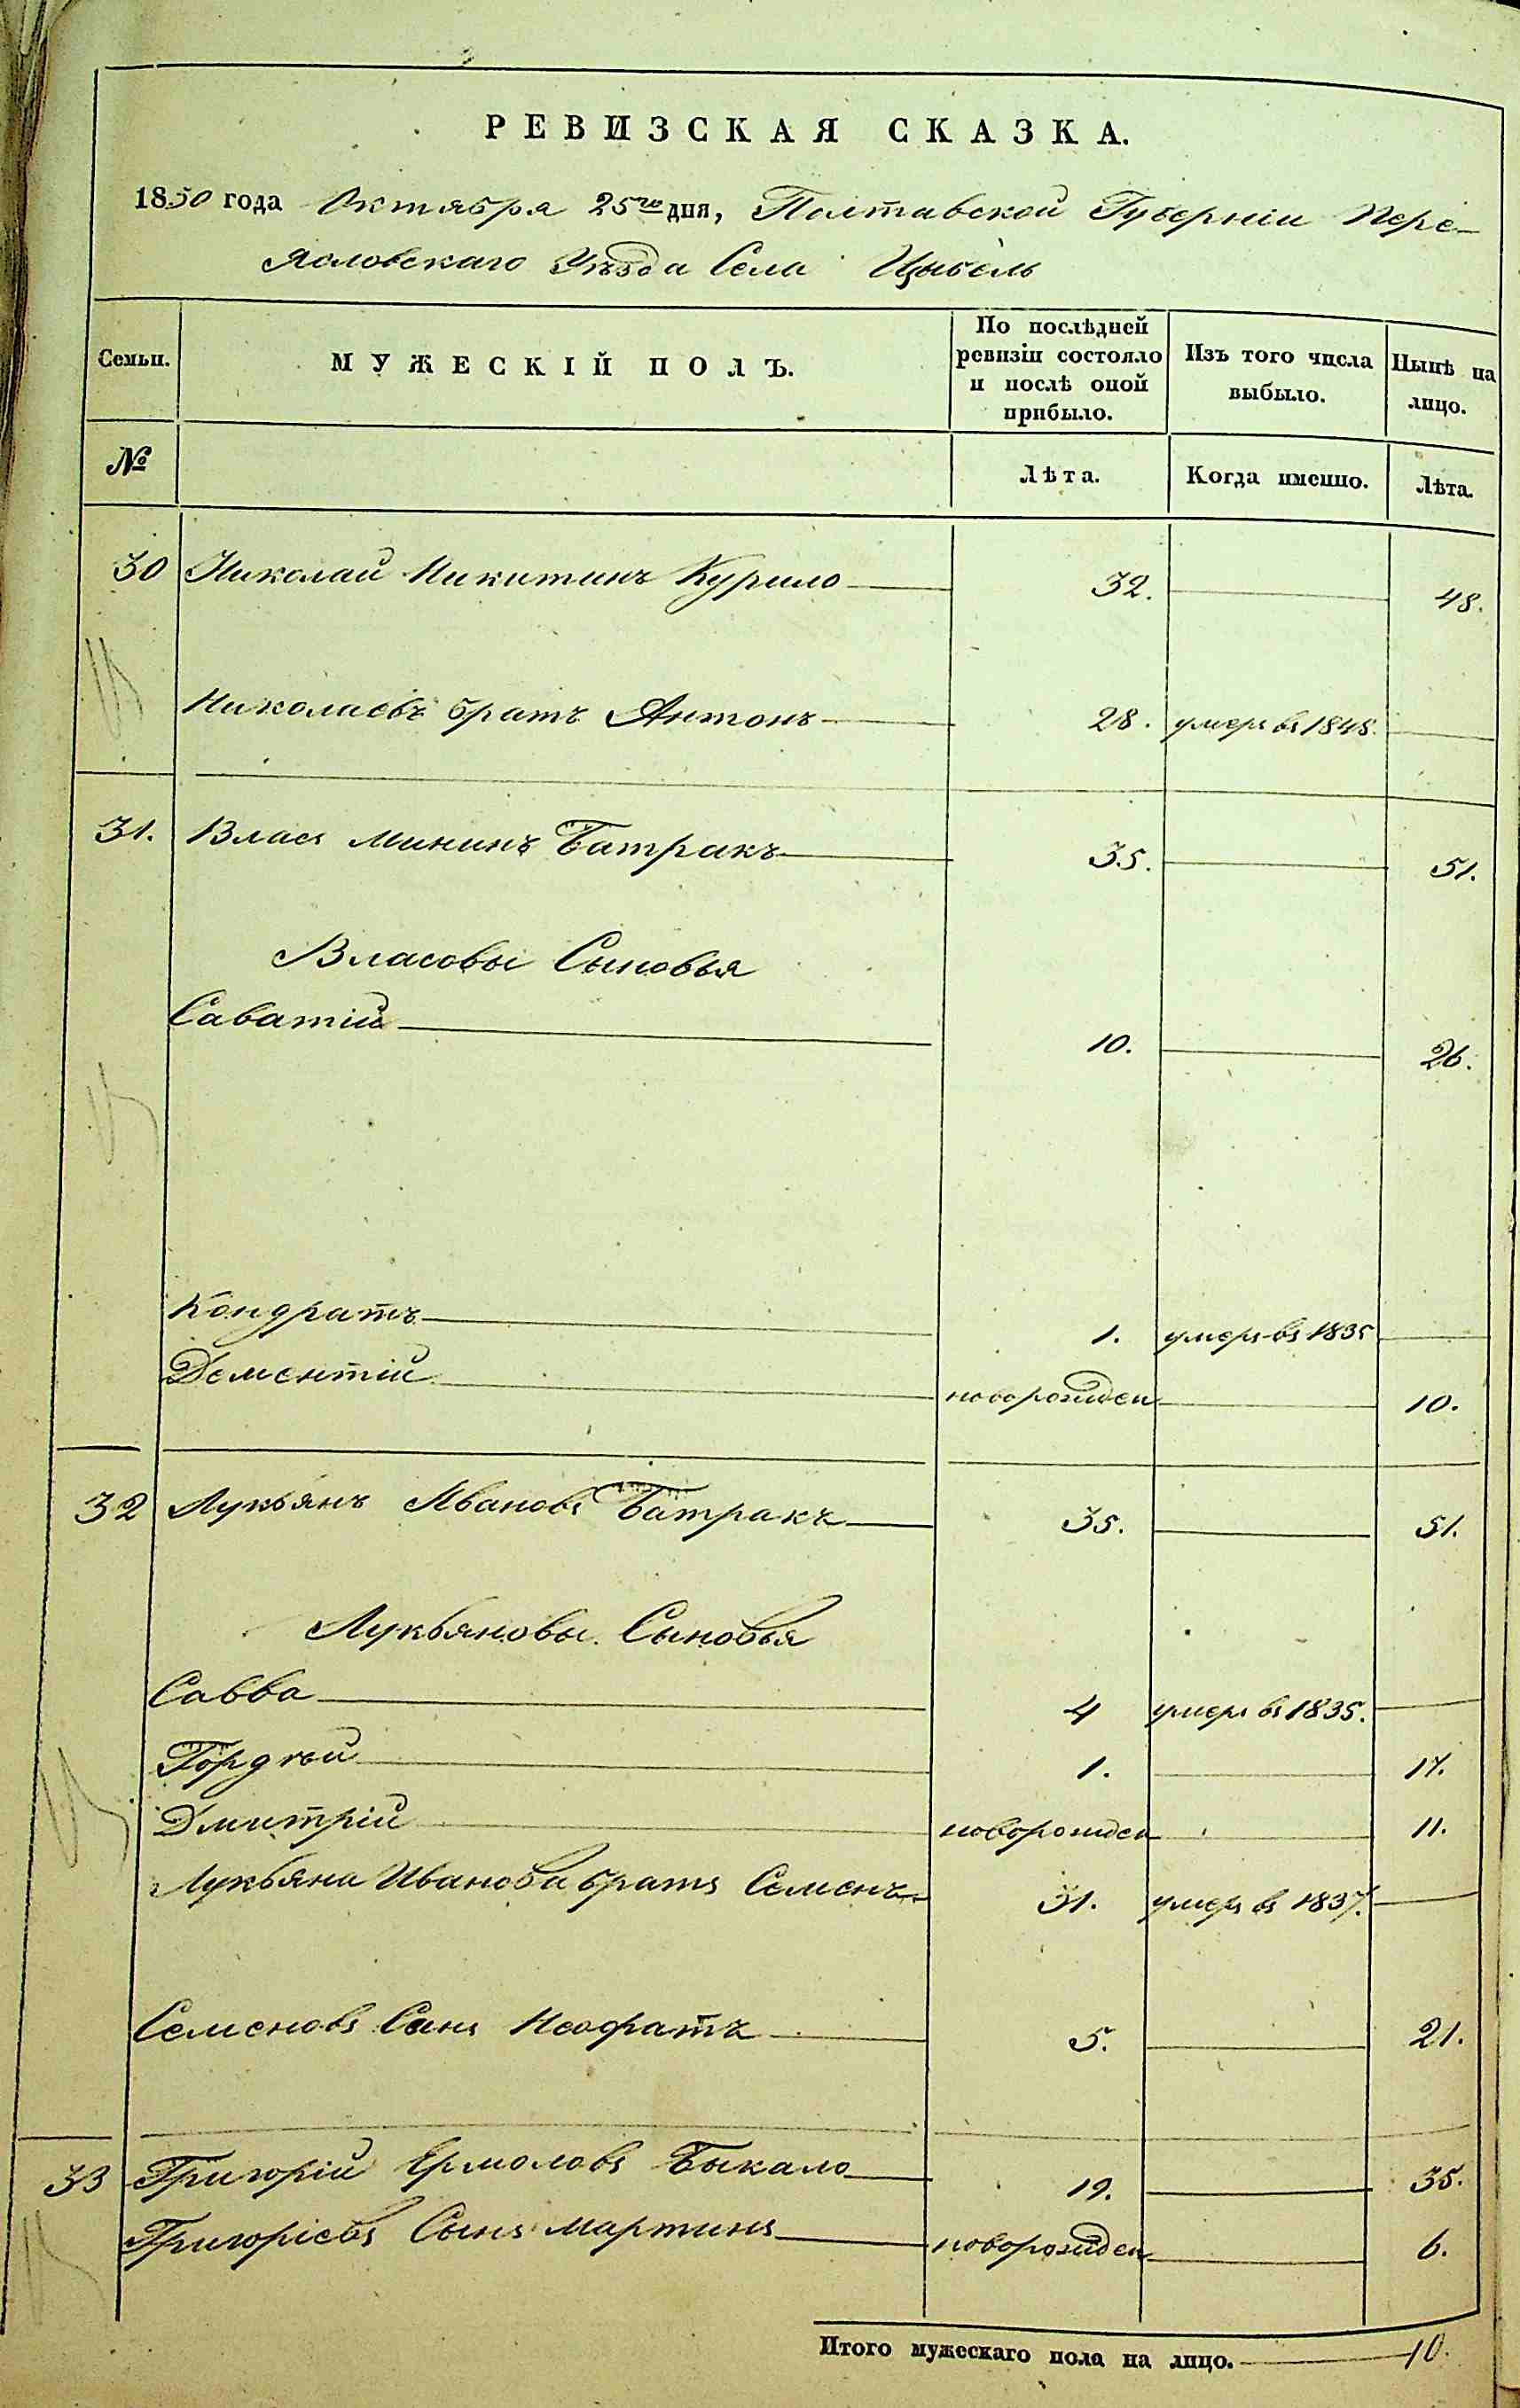 РЕВИЗСКАЯ СКАЗКА.
1850 года Октября 25го дня, Полтавской Губерніи Пере-
яславскаго Уѣзда Села Цыбель
Семьи. МУЖЕСКІЙ ПОЛЪ. По послѣдней ревизіи состояло и послѣ оной прибыло. Изъ того числа выбыло. Нынѣ на лицо.
№ Лѣта. Когда именно. Лѣта.
30 Николай Никитинъ Курило 32. 48.
Николаевъ братъ Антонъ 28. умеръ въ 1848.
31. Власъ Мининъ Батракъ 35. 51.
Власовы Сыновья
Саватій 10. 26.
Кондратъ 1. умеръ въ 1835
Дементій новорожден 10.
32 Лукьянъ Ивановъ Батракъ 35. 51.
Лукьяновы Сыновья
Савва 4 умеръ въ 1835.
Гордѣй 1. 17.
Дмитрій новорожден 11.
Лукьяна Иванова братъ Семенъ 31. умеръ въ 1837.
Семеновъ Сынъ Неофатъ 5. 21.
33 Григорій Ермоловъ Быкало 19. 35.
Григоріевъ Сынъ Мартинъ новорожден 6.
Итого мужескаго пола на лицо. 10.